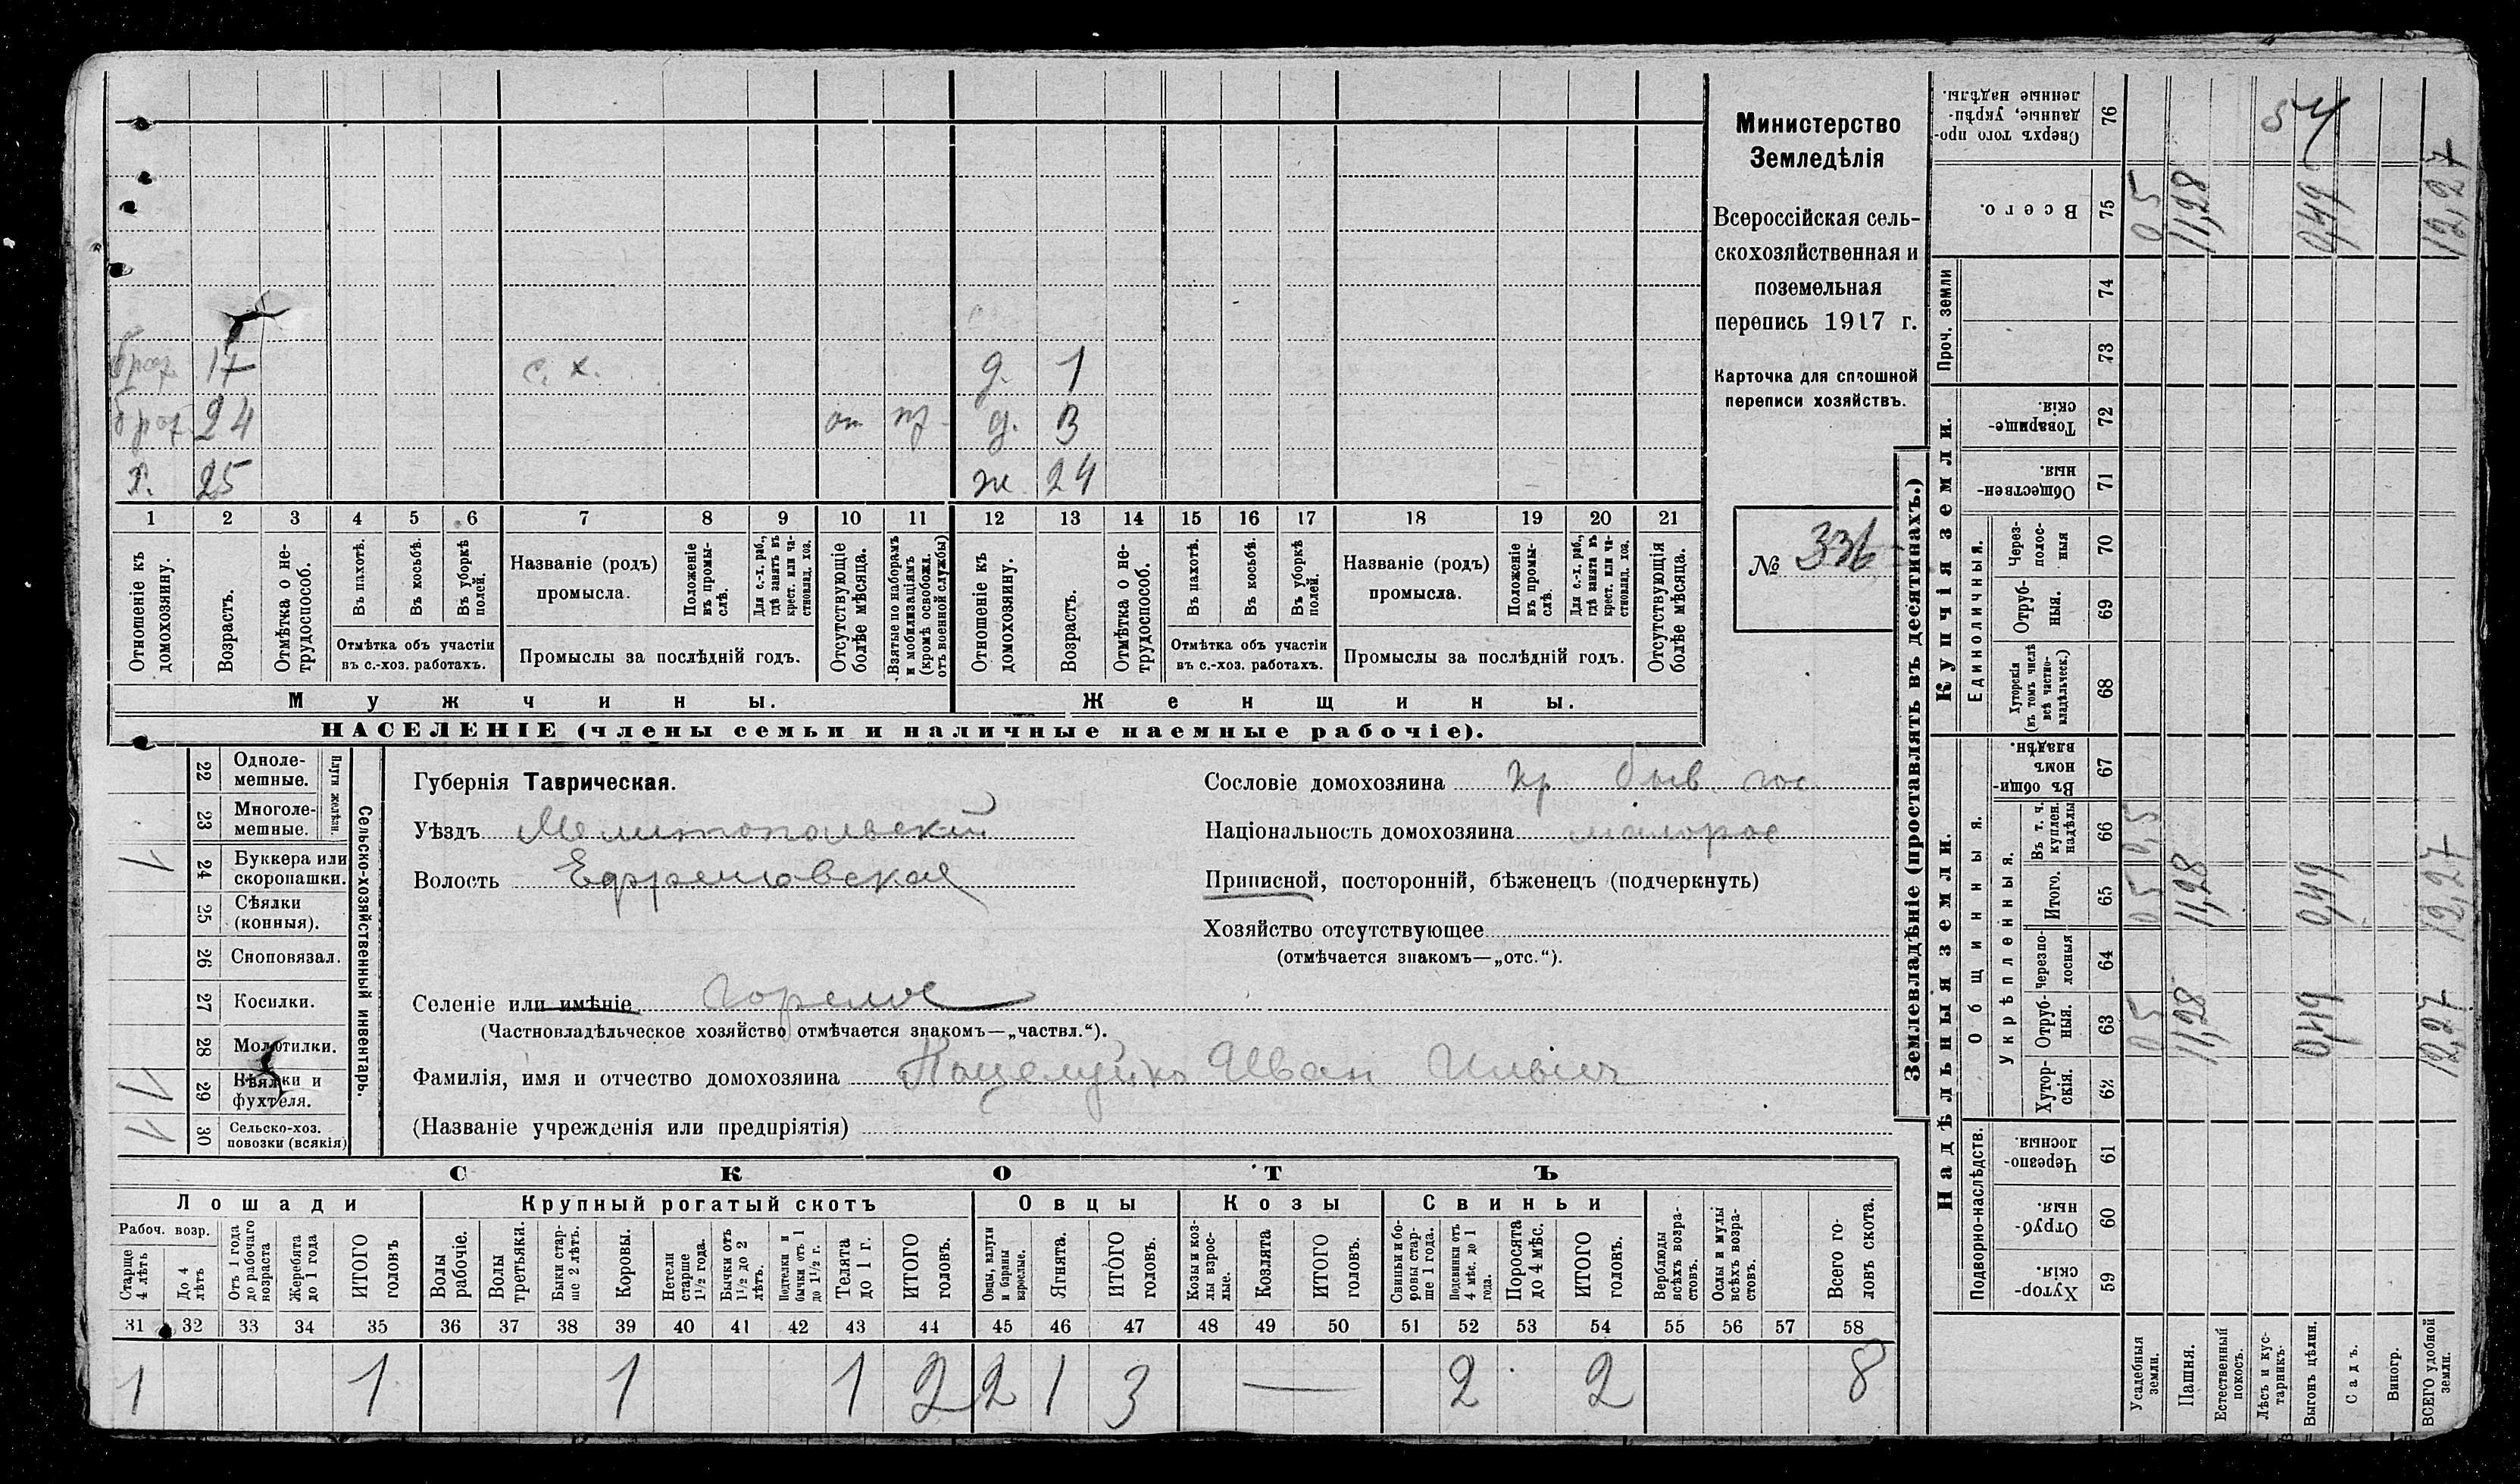 Министерство
Земледѣлія
Всероссійская сель-
скохозяйственная и
поземельная
перепись 1917 г.
Карточка для сплошной
переписи хозяйствъ.
№ 336
брат 17 с. х. д. 1
брат 24 от пр д. 3
х. 25 ж. 24
1 2 3 4 5 6 7 8 9 10 11 12 13 14 15 16 17 18 19 20 21
Отношеніе къ домохозяину.
Возрастъ.
Отмѣтка о не-трудоспособ.
Въ пахотѣ.
Въ косьбѣ.
Въ уборкѣ полей.
Отмѣтка объ участіи
въ с.-хоз. работахъ.
Названіе (родъ)
промысла.
Положеніе въ промы-слѣ.
Для с.-х. раб., гдѣ занятъ въ крест. или ча-стновлад. хоз.
Промыслы за послѣдній годъ.
Отсутствующіе болѣе мѣсяца.
Взятые по наборамъ и мобилизаціямъ (кромѣ освобожд. отъ военной службы)
Отношеніе къ домохозяину.
Возрастъ.
Отмѣтка о не-трудоспособ.
Въ пахотѣ.
Въ косьбѣ.
Въ уборкѣ полей.
Отмѣтка объ участіи
въ с.-хоз. работахъ.
Названіе (родъ)
промысла.
Положеніе въ промы-слѣ.
Для с.-х. раб., гдѣ занята въ крест. или ча-стновлад. хоз.
Промыслы за послѣдній годъ.
Отсутствующія болѣе мѣсяца.
Мужчины.
Женщины.
НАСЕЛЕНІЕ (члены семьи и наличные наемные рабочіе).
Сельско-хозяйственный инвентарь.
Плуги желѣзн.
22 Одноле-мешные.
23 Многоле-мешные.
1 24 Буккера или скоропашки.
25 Сѣялки (конныя).
26 Сноповязал.
27 Косилки.
28 Молотилки.
1 29 Вѣялки и фухтеля.
1 30 Сельско-хоз. повозки (всякія)
Губернія Таврическая.
Уѣздъ Мелитопольскій
Волость Ефремовская
Селеніе или имѣніе Горелое
(Частновладѣльческое хозяйство отмѣчается знакомъ—„частвл.“).
Фамилія, имя и отчество домохозяина Поцелуйко Иван Ильич
(Названіе учрежденія или предпріятія)
Сословіе домохозяина кр быв. гос.
Національность домохозяина малорос
Приписной, посторонній, бѣженецъ (подчеркнуть)
Хозяйство отсутствующее
(отмѣчается знакомъ—„отс.“).
СКОТЪ
Лошади
Крупный рогатый скотъ
Овцы
Козы
Свиньи
Рабоч. возр.
Старше 4 лѣтъ
До 4 лѣтъ
Отъ 1 года до рабочаго возраста
Жеребята до 1 года
ИТОГО головъ
Волы рабочіе.
Волы третьяки.
Быки стар-ше 2 лѣтъ.
Коровы.
Нетели старше 1½ года.
Бычки отъ 1½ до 2 лѣтъ.
Подтелки и бычки отъ 1 до 1½ г.
Телята до 1 г.
ИТОГО головъ.
Овцы, валухи и бараны взрослые.
Ягнята.
ИТОГО головъ.
Козы и коз-лы взрос-лые.
Козлята
ИТОГО головъ.
Свиньи и бо-ровы стар-ше 1 года.
Подсвинки отъ 4 мѣс. до 1 года.
Поросята до 4 мѣс.
ИТОГО головъ.
Верблюды всѣхъ возра-стовъ.
Ослы и мулы всѣхъ возра-стовъ.
Всего го-ловъ скота.
31 32 33 34 35 36 37 38 39 40 41 42 43 44 45 46 47 48 49 50 51 52 53 54 55 56 57 58
1 1 1 1 2 2 1 3 — 2 2 8
Землевладѣніе (проставлять въ десятинахъ.)
Надѣльныя земли.
Купчія земли.
Проч. земли
Подворно-наслѣдств.
Общинныя.
Укрѣпленныя.
Единоличныя.
Хутор-скія. 59
Отруб-ныя. 60
Черезпо-лосныя. 61
Хутор-скія. 62
Отруб-ныя. 63
Черезпо-лосныя 64
Итого. 65
Въ т. ч. куплен. надѣлы 66
Въ общи номъ владѣн. 67
Хуторскія (въ томъ числѣ всѣ частно-владѣльческ.) 68
Отруб-ныя. 69
Через-полос-ныя 70
Обществен-ныя. 71
Товарище-скія. 72
73
74
Всего. 75
Сверхъ того про-данные, укрѣп-ленные надѣлы. 76
Усадебныя земли. 0 5 0 5 0,5 0 5
Пашня. 11,28 11,28 11,28
Естественный покосъ.
Лѣсъ и кус-тарникъ.
Выгонъ цѣлин. 0,49 0,49 0,49
Садъ.
Виногр.
ВСЕГО удобной земли. 12,27 12,27 12,27 12,27
54